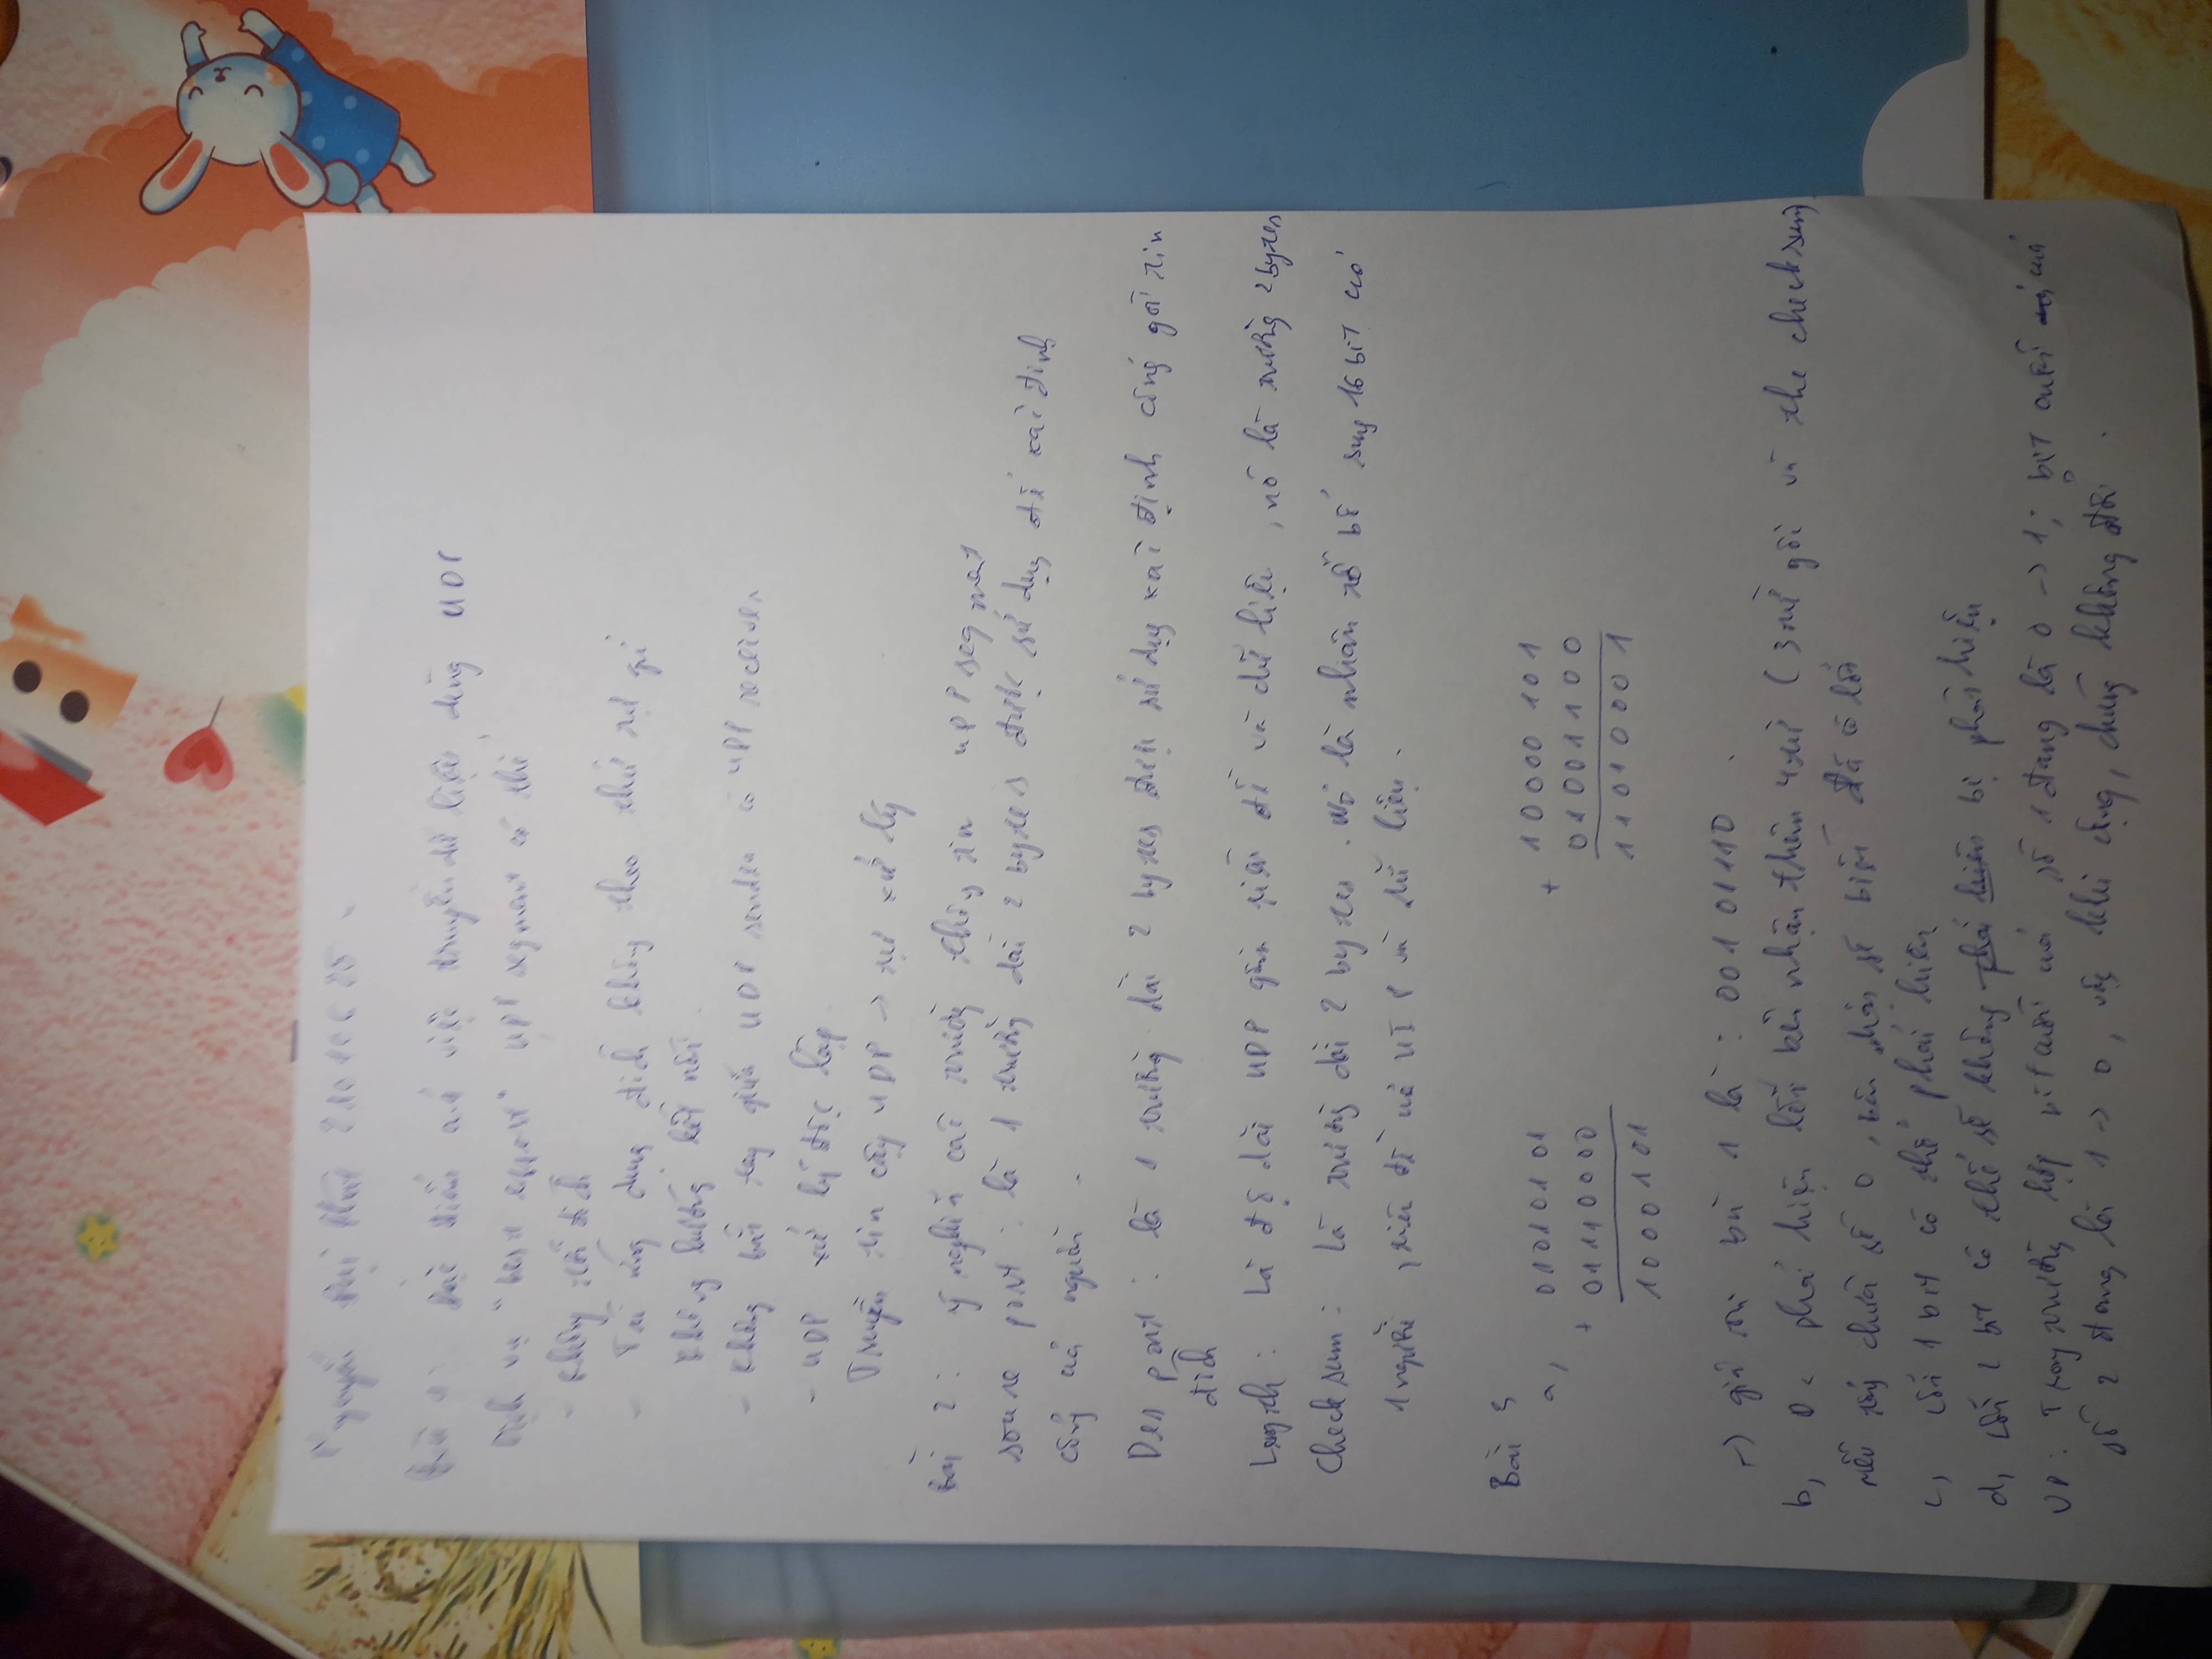 Nguyễn Thị 21010625
Bài 1: Đặc điểm của việc truyền dữ liệu dùng UDP
Dịch vụ "best effort" UDP segment có thể
- Không tới đích
- Tới ứng dụng đích không theo thứ tự gửi
Không hướng kết nối.
- Không bắt tay giữa UDP sender và UDP receiver
- UDP xử lý độc lập.
Truyền tin cậy UDP → tự xử lý
Bài 2: ý nghĩa các trường thông tin UDP segment
port: là 1 trường dài 2 bytes được sử dụng để xác định
cổng của nguồn.
Des port: là 1 trường dài 2 bytes được sử dụng xác định cổng gói tin
đích
Length: Là độ dài UDP gồm tiêu đề và dữ liệu, nó là trường 2 bytes
Checksum: Là trường dài 2 bytes. Nó là bổ sung 16 bit của
tiêu đề và dữ liệu.
Bài 3
a, 01010101 + 01110000
1000101
+ 10000101 01001100
11010001
→ giá trị bù 1 là: 00101110.
b, phát hiện lỗi bên nhận thêm 4 từ (3 từ gói và the checksum)
nếu tổng chứa số 0, bên nhận sẽ biết đã có lỗi
c, Lỗi 1 bit có thể phát hiện
d, Lỗi 2 bit có thể sẽ không bị phát hiện
VD: Trong trường hợp bit cuối của số 1 đang là 0 → 1; bit cuối của
số 2 đang là 1 → 0, vậy khi cộng, chúng không đổi.